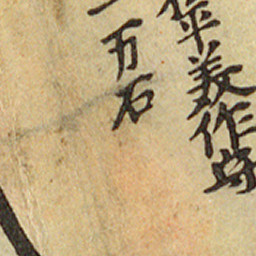 平美作守
一万石